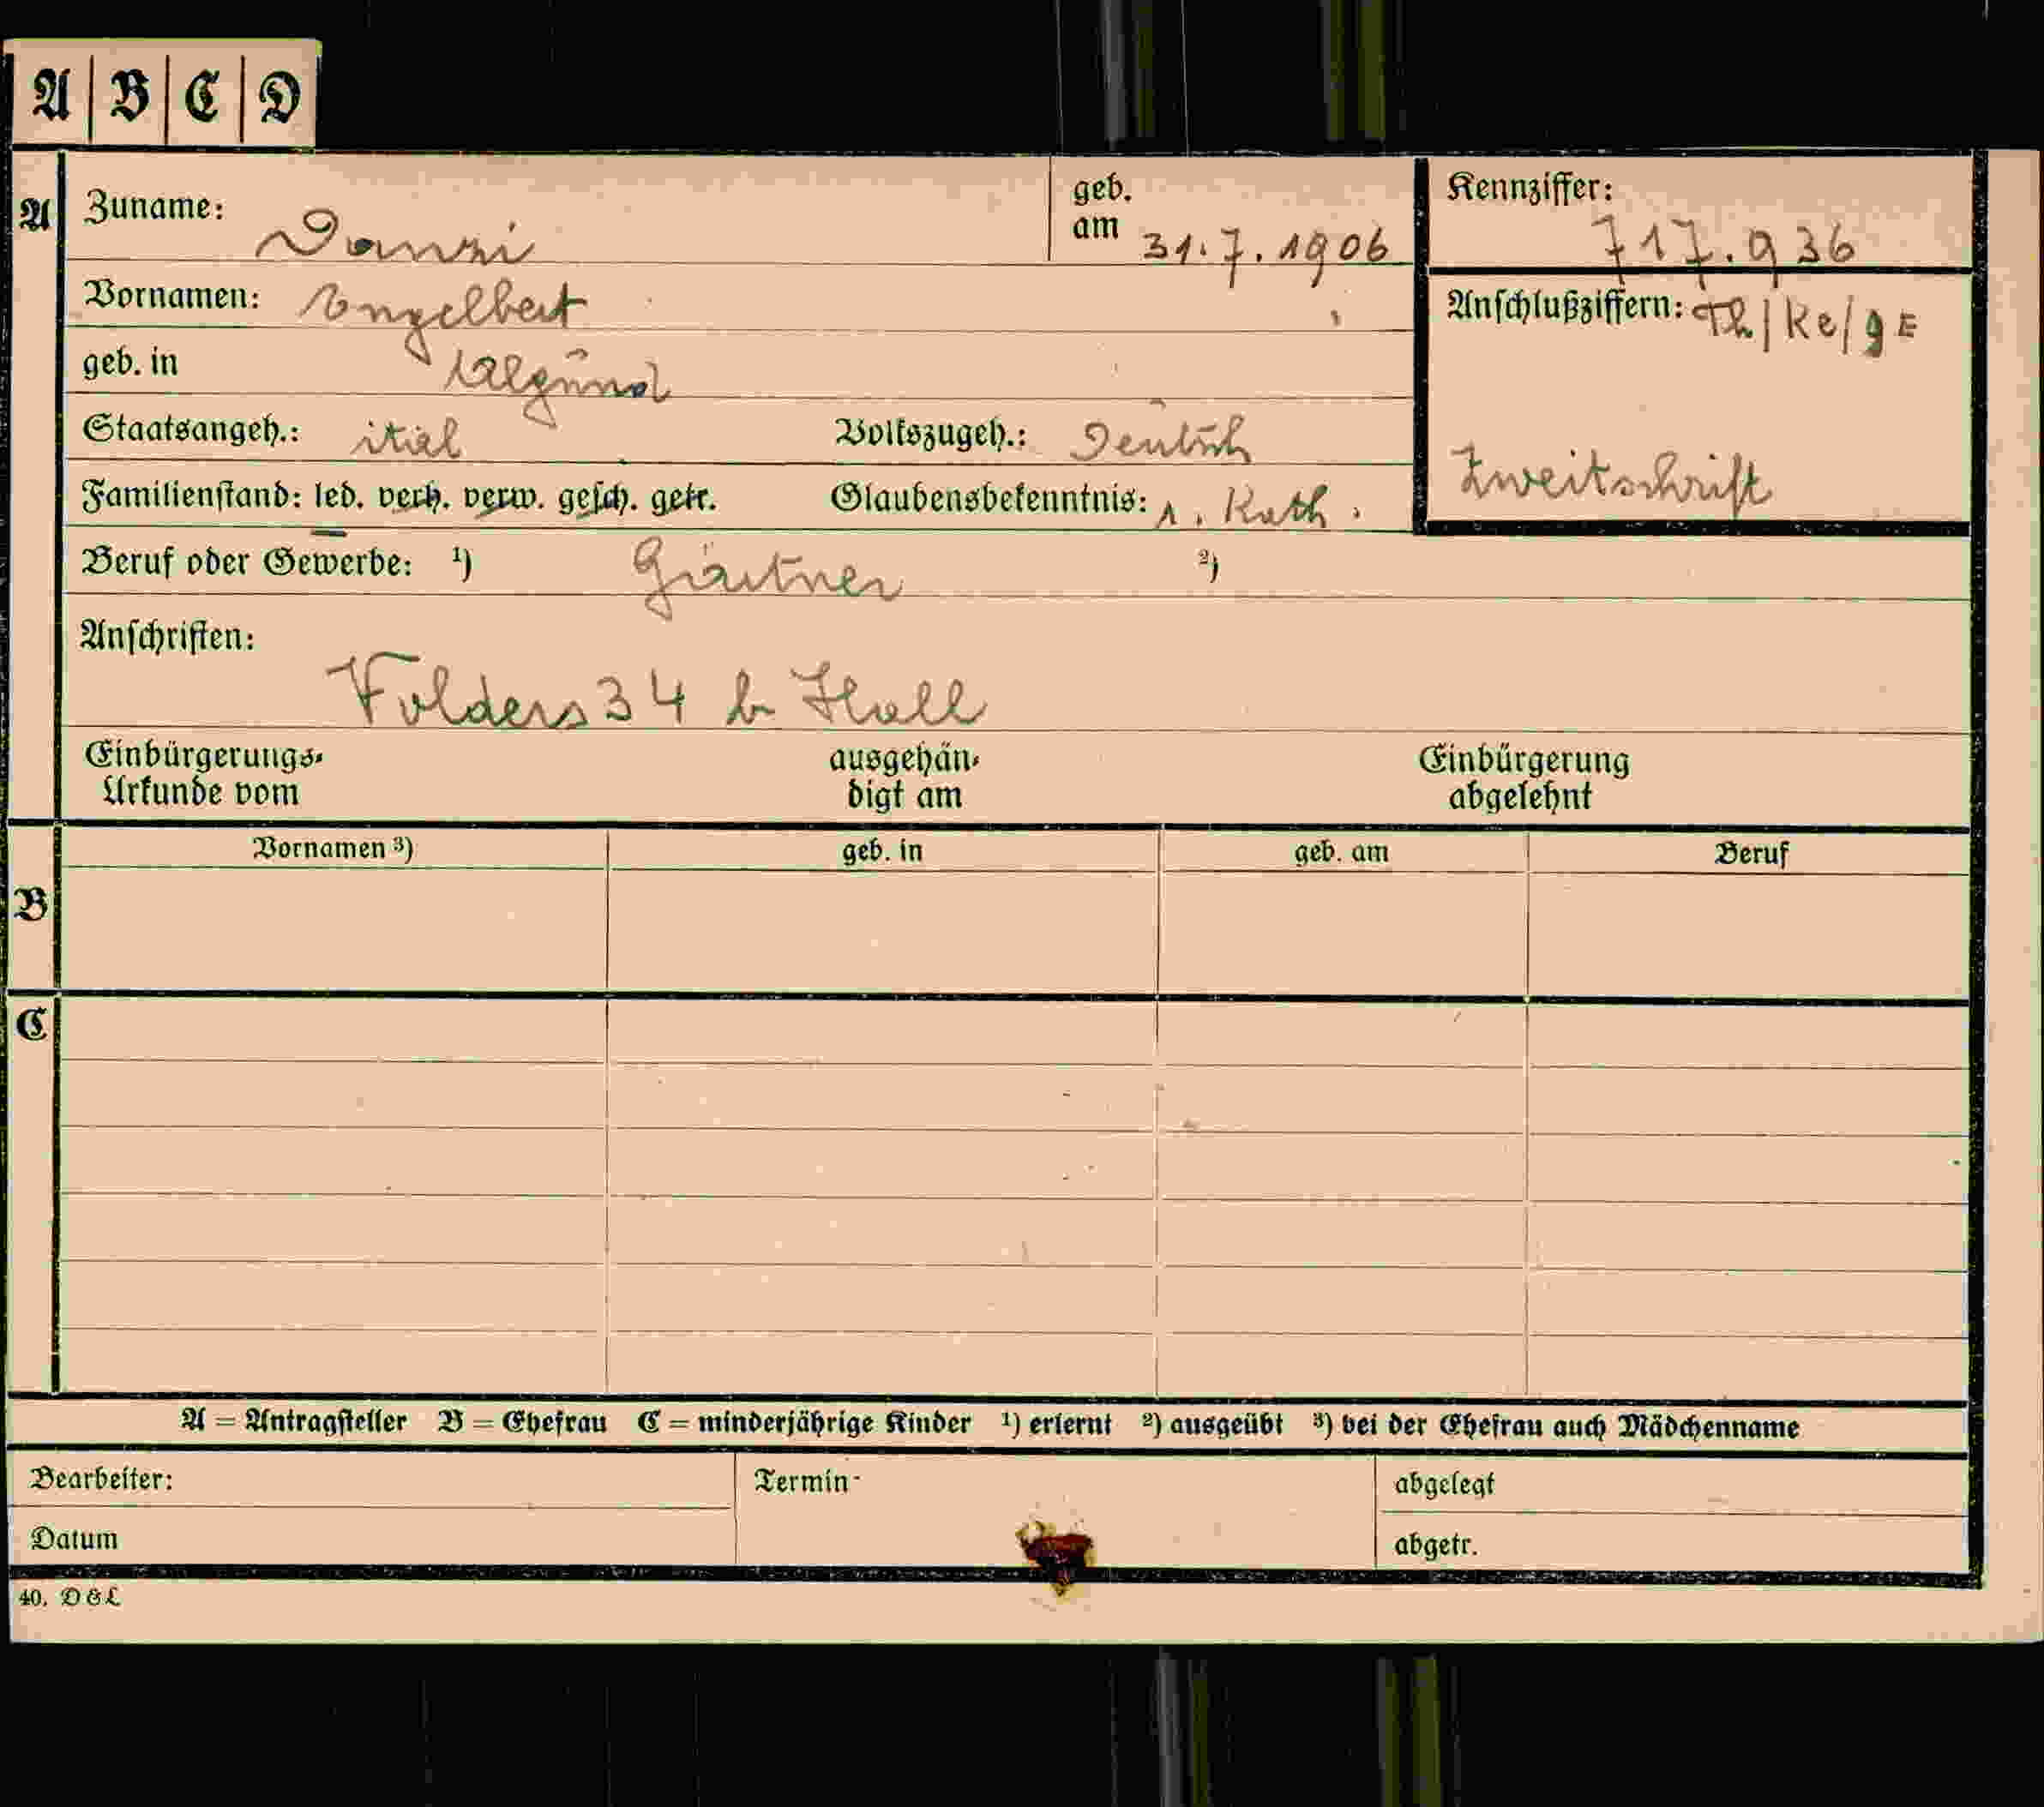 A B C D
A Zuname: Danzi geb. am 31.7.1906 Kennziffer: 717.936
Vornamen: Engelbert Anschlußziffern: Th/Ke/gE
geb. in Algund
Staatsangeh.: ital Volkszugeh.: Deutsch
Familienstand: led. verh. verw. gesch. getr. Glaubensbekenntnis: r. Kath. Zweitschrift
Beruf oder Gewerbe: ¹) Gärtner ²)
Anschriften:
Volders 34 b Hall
Einbürgerungs-Urkunde vom ausgehändigt am Einbürgerung abgelehnt
Vornamen ³) geb. in geb. am Beruf
B
C
A = Antragsteller B = Ehefrau C = minderjährige Kinder ¹) erlernt ²) ausgeübt ³) bei der Ehefrau auch Mädchenname
Bearbeiter: Termin- abgelegt
Datum abgetr.
40. D & L